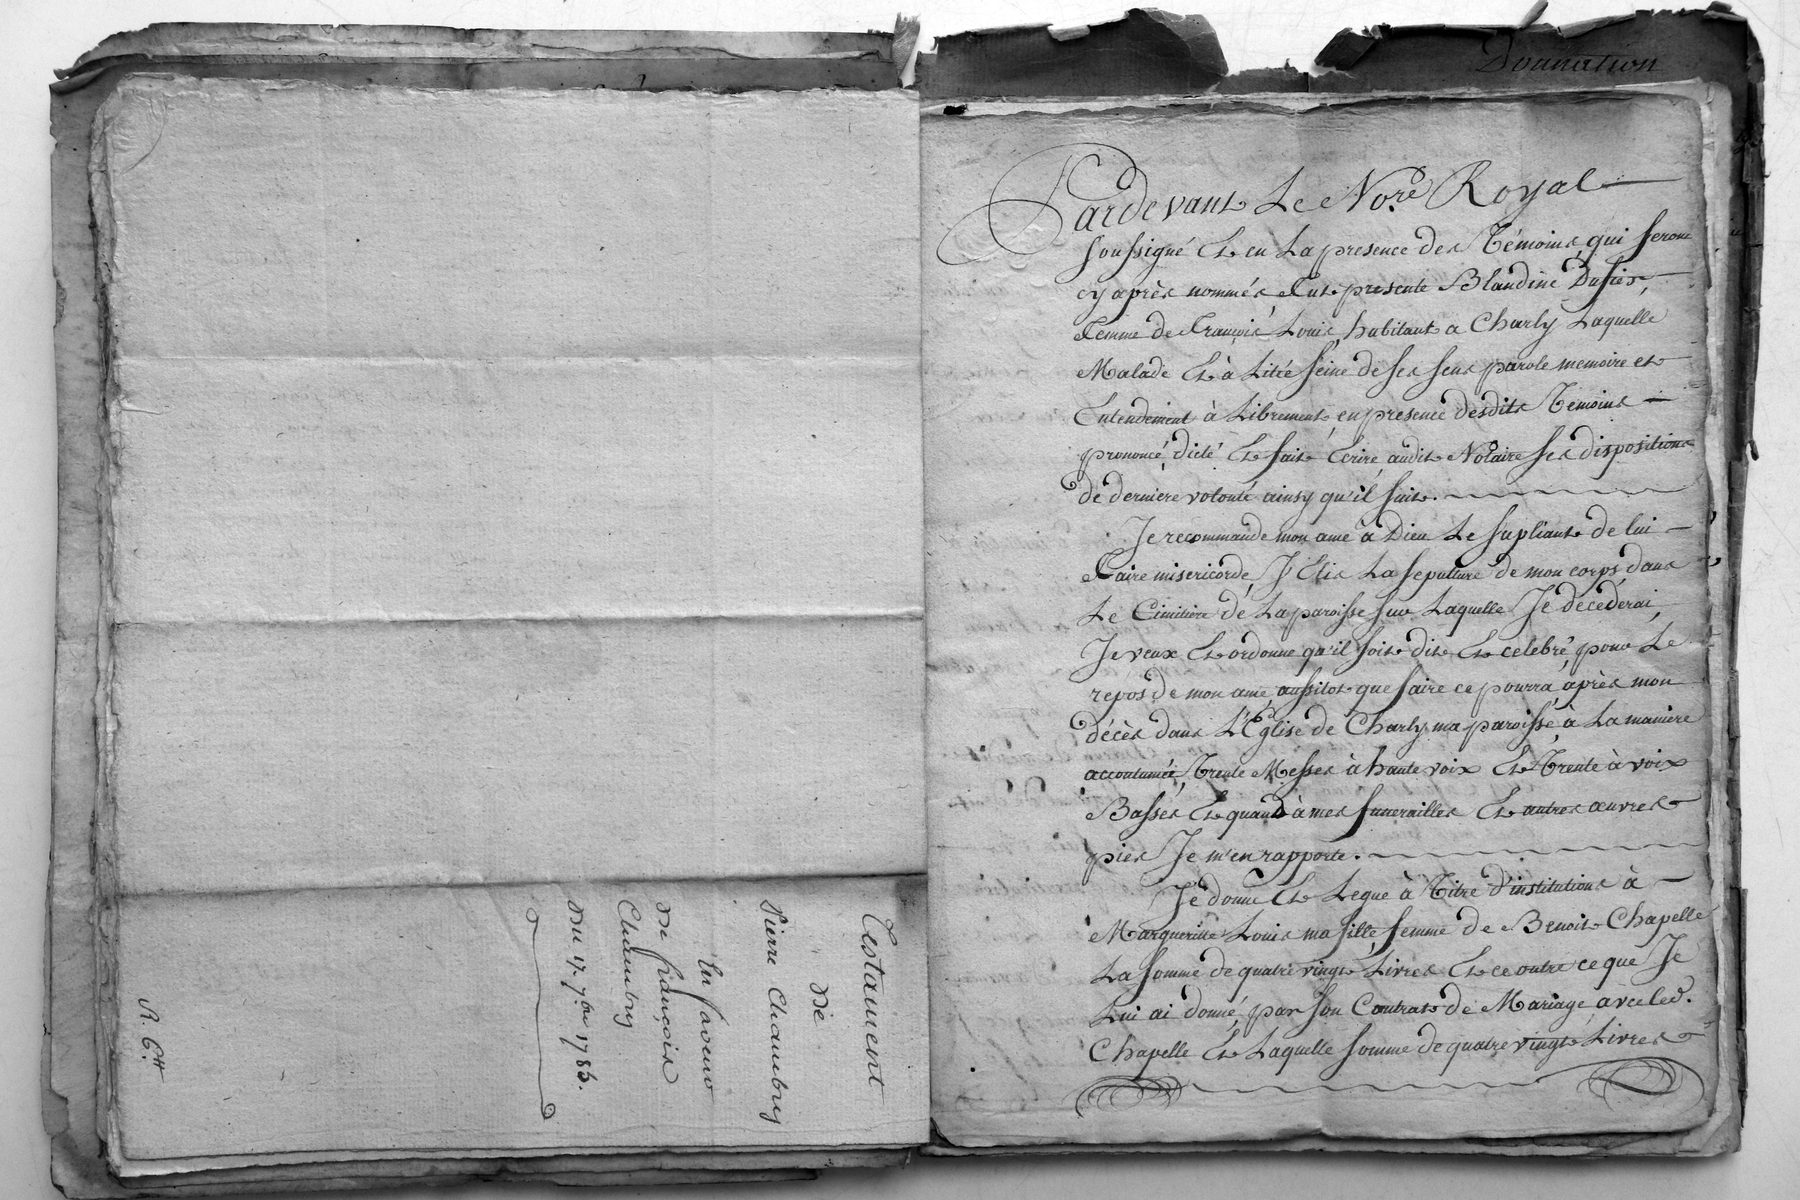 Donnation
Testament
De
Pierre Chambry
En faveur
De françoise
Chambry
Du 17. 7bre 1785.
R. Gtt
Pardevant Le Nore Royal
soussigné Et en La presence des Témoins qui seront
cy après nommés fut presente Blandine
femme de françois Louis habitant a Charly Laquelle
Malade Et à Litée seine de ses sens parole memoire et
Entendement à Librement en presence desdits Temoins
prononcé dicté Et fait Ecrire audit Notaire ses dispositions
de derniere volonté ainsy qu'il suit.
Je recommande mon ame à Dieu Le supliant de lui
faire misericorde, J'Elis La sepulture de mon corps dans
Le Cimitiere de La paroisse sur Laquelle Je décéderai,
Je veux Et ordonne qu'il soit dit Et celebré pour Le
repos de mon ame aussitot que faire ce pourra après mon
décès dans L'Eglise de Charly ma paroisse à La maniere
accoutumée Trente Messes à haute voix Et Trente à voix
Basses Et quand à mes funerailles Et autres œuvres
pies Je m'en rapporte.
Je donne Et Legue à Titre d'institutions à
Margueritte Louis ma fille femme de Benoit Chapelle
La somme de quatre vingt Livres Et ce outre ce que Je
Lui ai donné par son Contrat de Mariage avec led.
Chapelle Et Laquelle somme de quatre vingt Livres